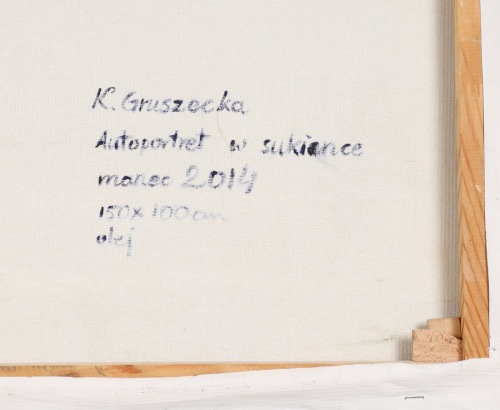 K. Gruszecka
Autoportret w sukience
marzec 2014
150x100cm
olej